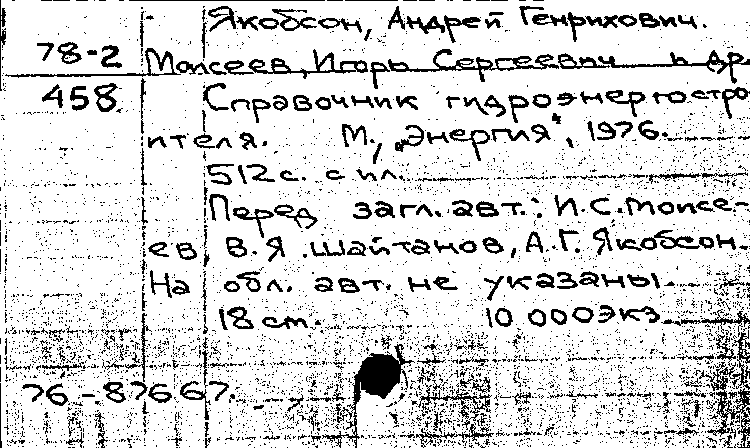 Якобсон, Андрей Генрихович.
78-2 Моисеев, Игорь Сергеевич и др.
458 Справочник гидроэнергостро
ителя. М., „Энергия“, 1976.
512 с. с ил.
Перед загл. авт.: И.С. Моисе-
ев, В.Я. Шайтанов, А.Г. Якобсон.
На обл. авт. не указаны.
18 см. 10 000 экз.
76-87667.